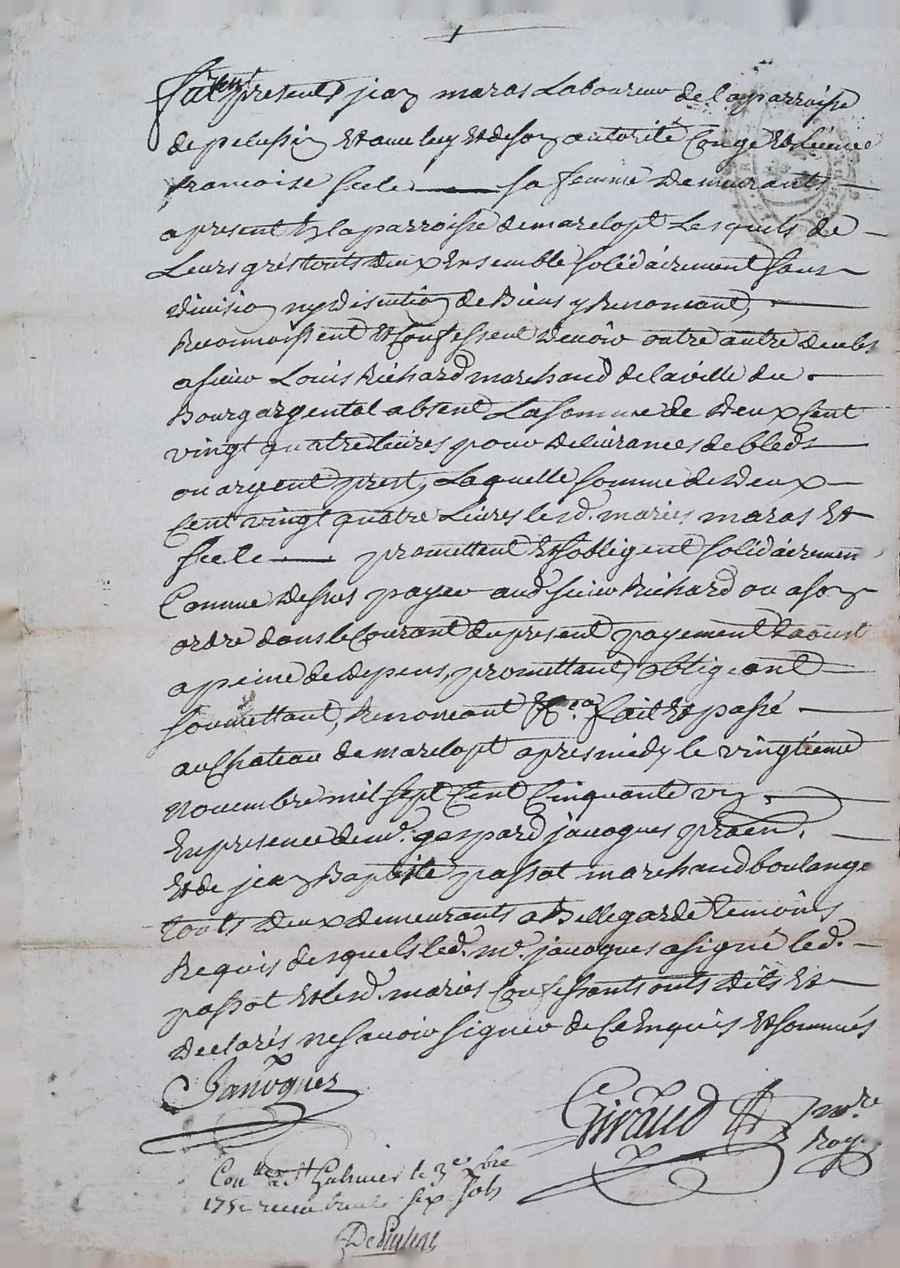 furent present jean maras Laboureur de la parroisse
de pelussin Et avec luy Et de son autorité Congé Et Licence
francoise sicle sa femme Demeurants
a present En la parroisse de marclopt Lesquels de
Leurs grés touts deux Ensemble solidairement sans
division ny discution de Biens y Renonceant,
Reconnoissent Et Confessent Devoir outre autre deubs
a sieur Louis Richard marchand de la ville du
Bourgargental absent La somme de Deux Cent
vingt quatre livres pour Delivrances de bleds
ou argent prest, Laquelle somme de Deux
Cent vingt quatre Livres lesd. mariés maras Et
sicle promettent Et s'obligent solidairement
Comme Dessus payer aud sieur Richard ou a son
ordre dans le Courant du present payement daoust
a peine de depens, promettant, obligeant
soumettant, Renonceant fait Et passé
au Chateau de marclopt apres midy le vingtieme
Novembre mil sept Cent Cinquante un
En presence de me. gaspard jacoques
Et de jean Baptiste passot marchand boulange
touts Deux demeurants a Bellegarde temoins
Requis desquels led. me. jacoques a signé led.
passot Et lesd. mariés Confessants onts dits Et
declarés ne savoir signer de Ce Enquis Et sommés
Janoques
Giraud
Roy
Con a St Galmier le 3e xbre
175 sols